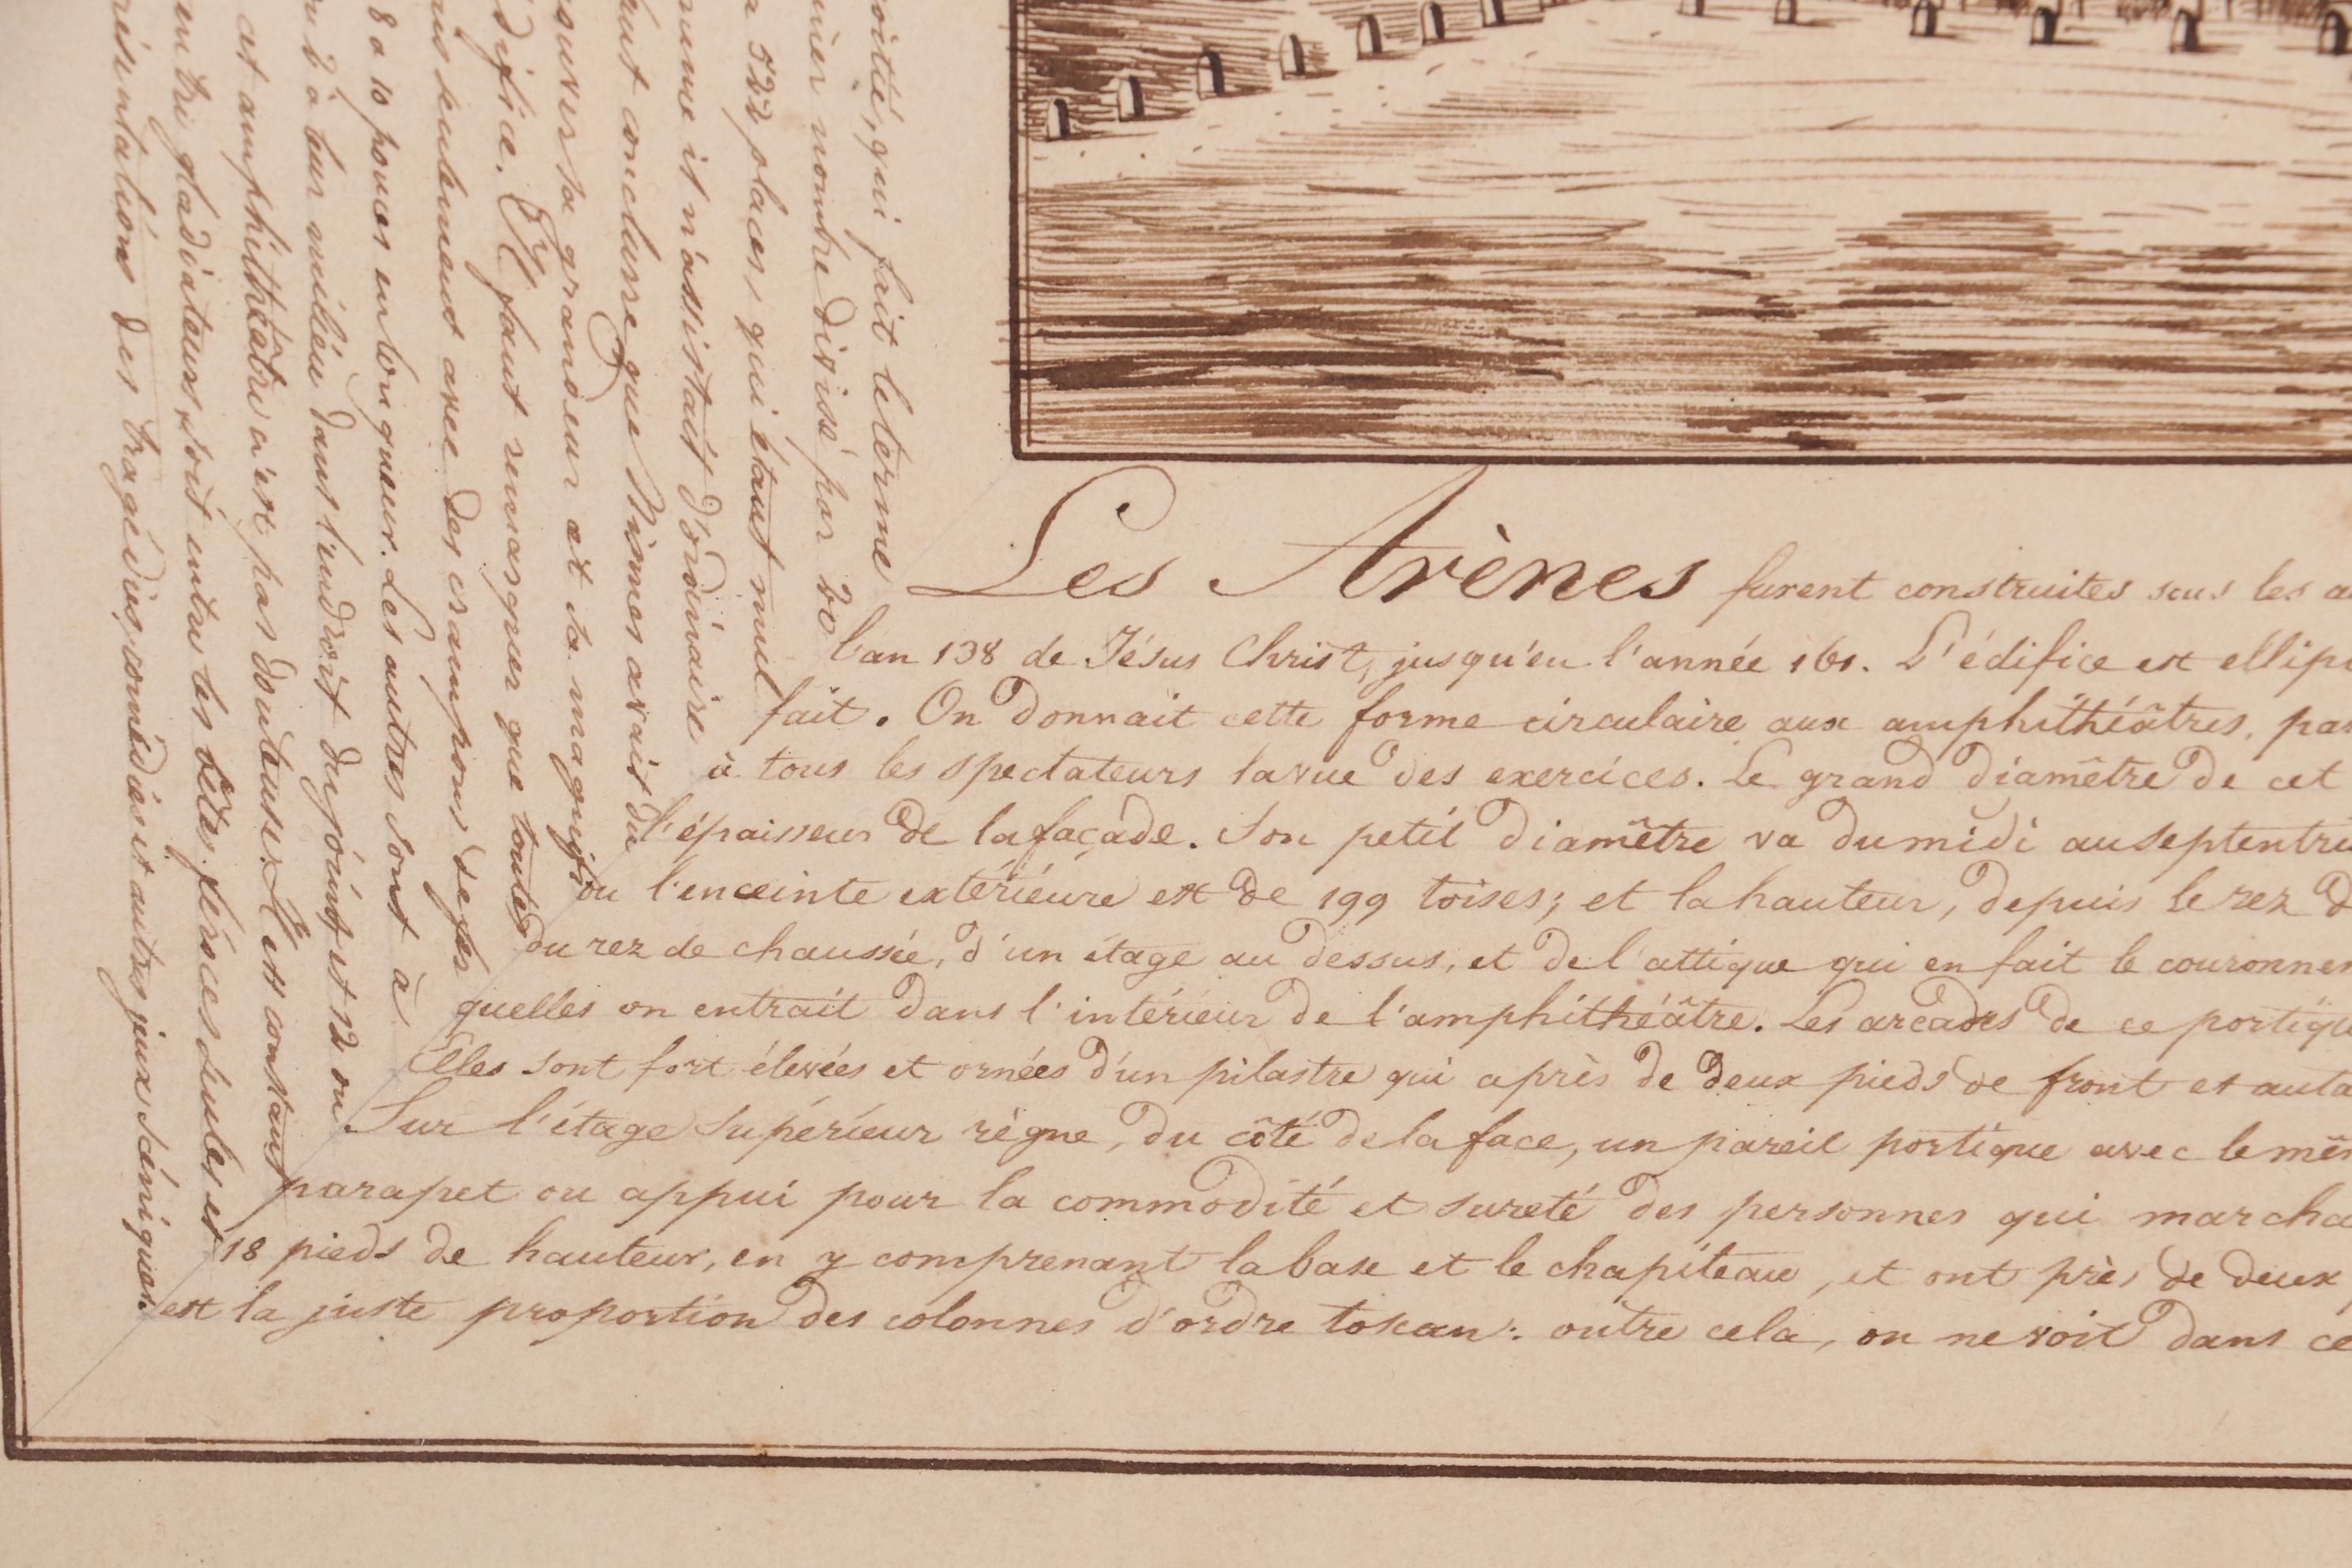 Les Arènes furent construites sous les
l'an 138 de Jésus Christ, jusqu'en l'année 161. L'édifice est
fait. On donnait cette forme circulaire aux amphithéâtres,
à tous les spectateurs la vue des exercices. Le grand diamêtre de cet
l'épaisseur de la façade. Son petit diamêtre va du midi au
ou l'enceinte extérieure est de 199 toises; et la hauteur, depuis le rez
du rez de chaussée, d'un étage au dessus, et de l'attique qui en fait le
quelles on entrait dans l'intérieur de l'amphithéâtre. Les arcades de ce
Elles sont fort élevées et ornées d'un pilastre qui après de deux pieds de front et
Sur l'étage supérieur règne, du côté de la face, un pareil portique avec le
parapet ou appui pour la commodité et sureté des personnes qui
18 pieds de hauteur, en y comprenant la base et le chapiteau, et ont près de deux
est la juste proportion des colonnes d'ordre toscan: outre cela, on ne voit dans
qui fait le terme
nombre divisé par 20
522 places, qui étant
il n'assistait d'ordinaire
conclurre que Nismes avait du
sa grandeur et sa
Il faut remarquer que toutes
seulement avec des crampons de fer
8 a 10 pouces en longueur. Les autres sont à
à leur milieu dans l'endroit des joints et 12 ou
et amphithéâtre n'est pas douteux. Il est constant
gladiateurs, soit entre les bêtes féroces seules et
des tragédies, comédies et autres jeux scéniques.